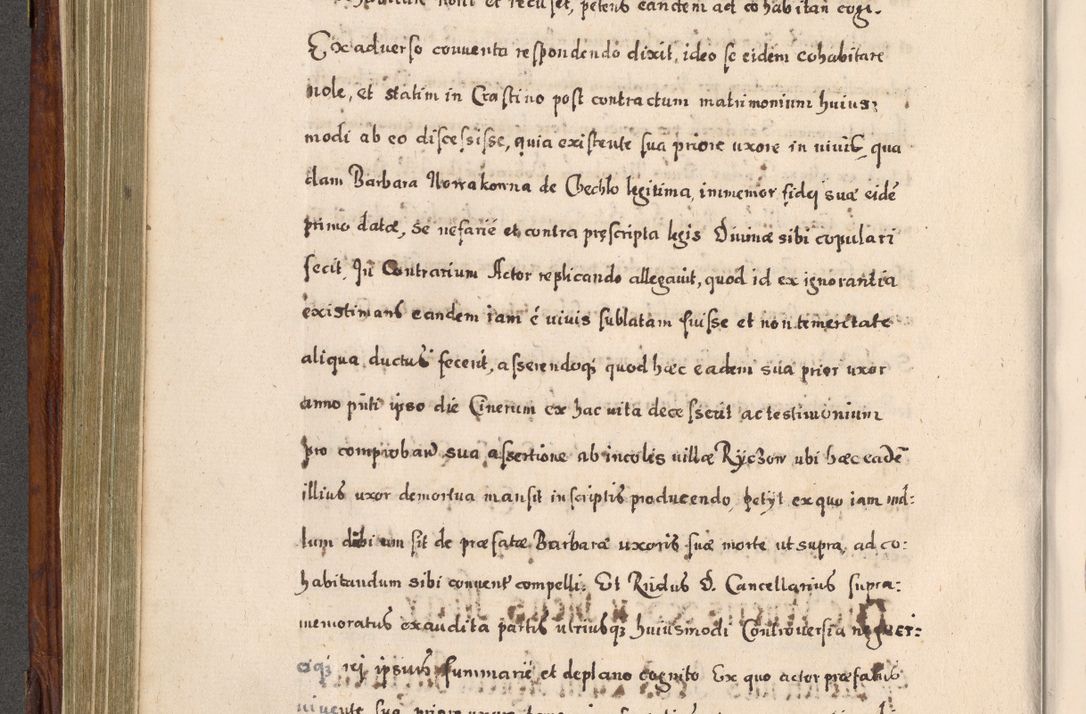 nolit et recuset, petens eandem ad cohabitan cogi.
Ex adverso conventa respondendo dixit, ideo se eidem cohabitare
nole, et statim in Crastino post contractum matrimonium huius:
modi ab eo discessisse, quia existente sua priore uxore in vivis, qua
dam Barbara Nowakowna de Chechlo legitima, immemor fidej suæ eidē
primo datæ, se nefarie et contra pręscripta legis Divinæ sibi copulari
fecit, In Contrarium Actor replicando allegavit, quod id ex ignorantia
existimans eandem iam é vivis sublatam fuisse et non temeritate
aliqua ductus fecerit, asserendoq; quod hæc eadem sua prior uxor
anno pñti ipso die Cinerum ex hac vita decesserit ac testimonium
pro comproban̄ sua assertione ab incolis villæ Ryczow ubi hæc eadē
illius uxor demortua mansit in scriptis producendo, petyt ex quo iam nul:
lum dubium sit de præfatæ Barbaræ uxoris suæ morte ut supra, ad co:
habitandum sibi convent compelli. Et Rñdus D. Cancellarius supra:
memoratus exaudita partis utriusq; huiusmodi Controversia
oq; rej ipsius summarie et de plano cognito Ex quo actor præfatus
vivente sua priore uxore